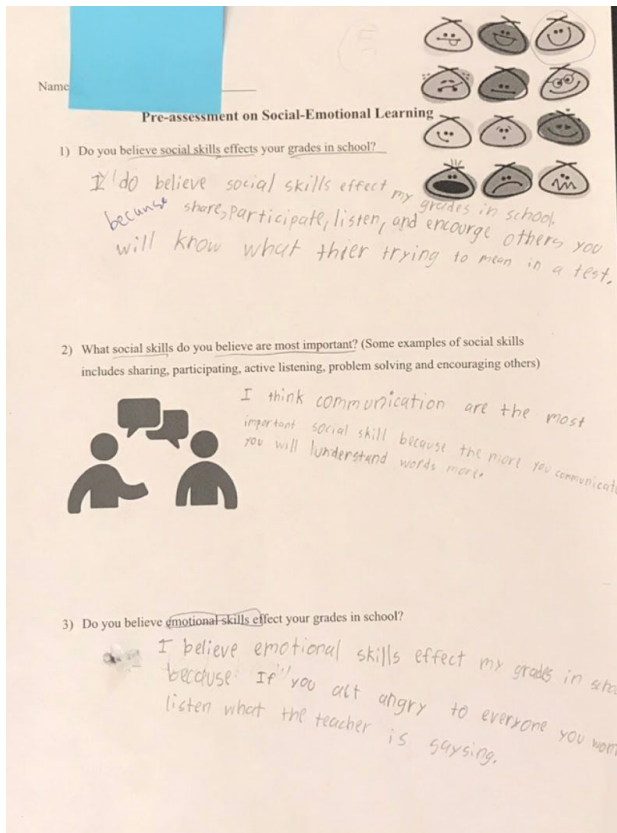 Name
Pre-assessment on Social-Emotional Learning
1) Do you believe social skills effects your grades in school?
I do believe social skills effect my grades in school.
becunse share, participate, listen, and encourge others you
will know what thier trying to mean in a test.
2) What social skills do you believe are most important? (Some examples of social skills
includes sharing, participating, active listening, problem solving and encouraging others)
I think communication are the most
important social skill because the more you communicate
you will understand words more.
3) Do you believe emotional skills effect your grades in school?
I believe emotional skills effect my grades in scho
because If you act angry to everyone you won
listen what the teacher is saysing.